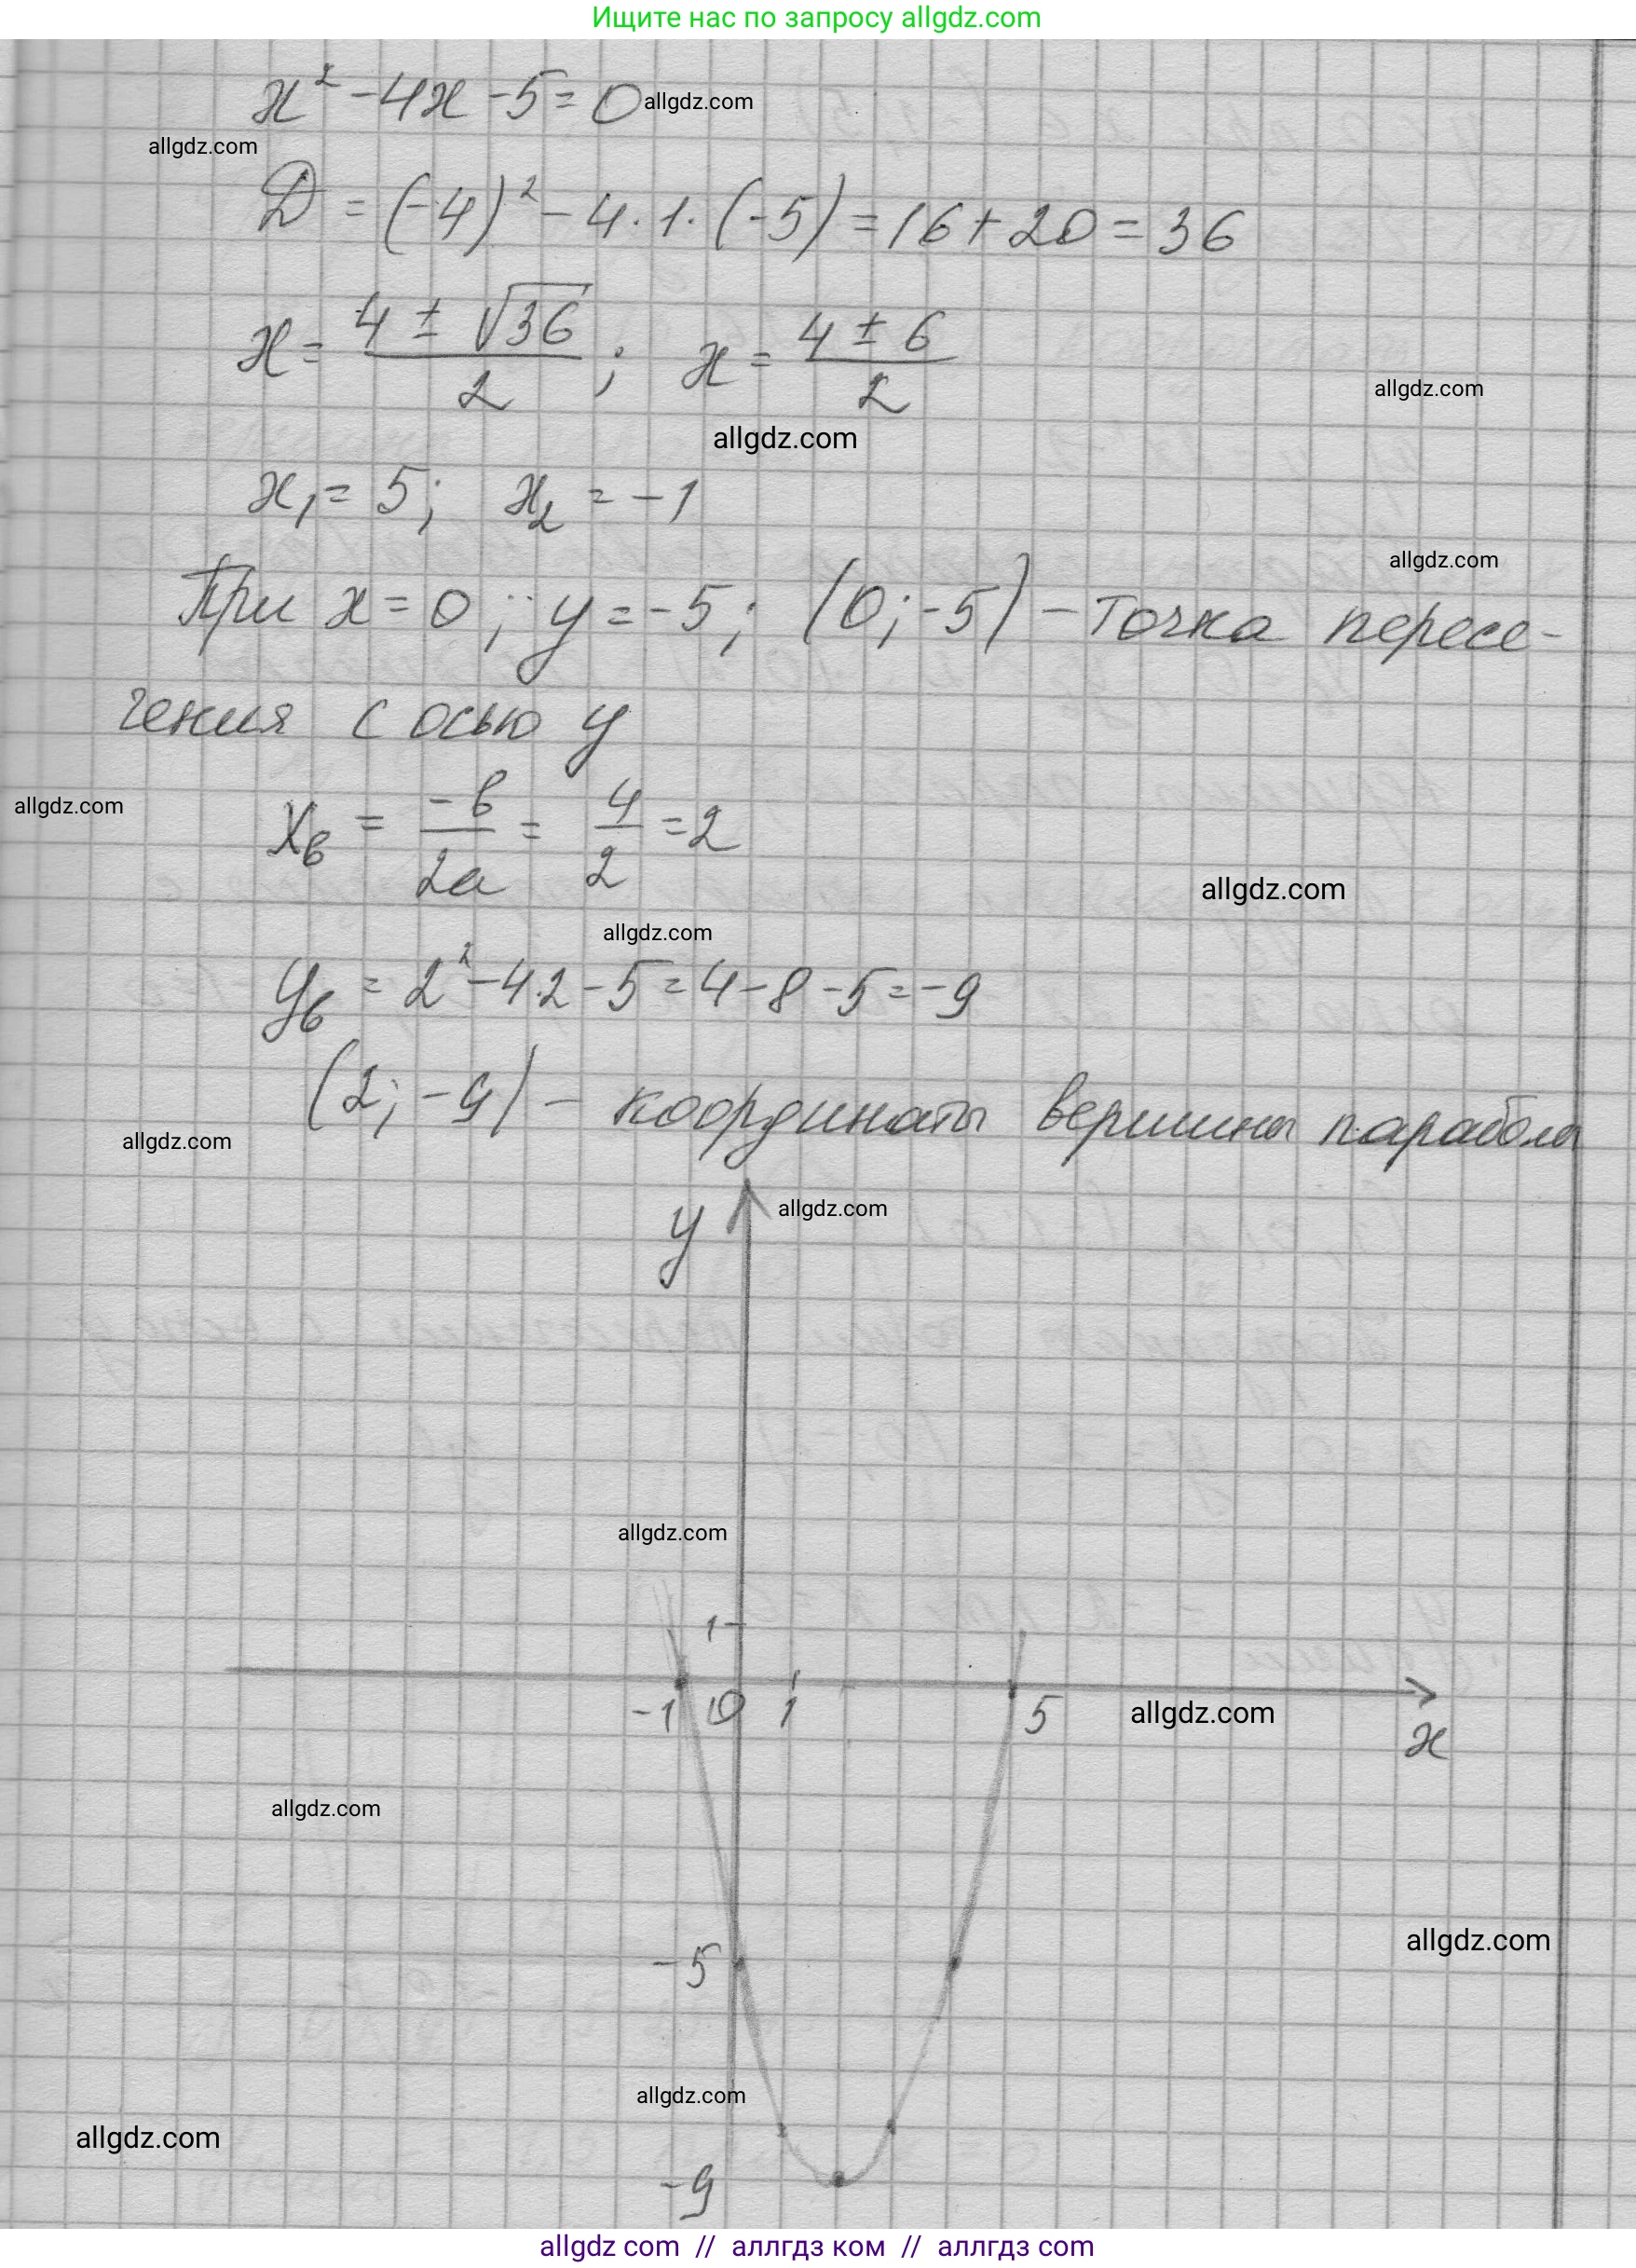 Ищите нас по запросу allgdz.com
x² - 4x - 5 = 0 allgdz.com
allgdz.com
D = (-4)² - 4 · 1 · (-5) = 16 + 20 = 36
x = (4 ± √36)/2 ; x = (4 ± 6)/2
allgdz.com
allgdz.com
x₁ = 5; x₂ = -1
allgdz.com
При x = 0; y = -5; (0; -5) - точка пересе-
чения с осью y
allgdz.com
xв = -b/2a = 4/2 = 2
allgdz.com
allgdz.com
yв = 2² - 4·2 - 5 = 4 - 8 - 5 = -9
(2; -9) - координаты вершины параболы
allgdz.com
y allgdz.com
allgdz.com
1
-1 0 1 5 allgdz.com
x
allgdz.com
allgdz.com
-5
allgdz.com
allgdz.com
-9
allgdz com // аллгдз ком // аллгдз com